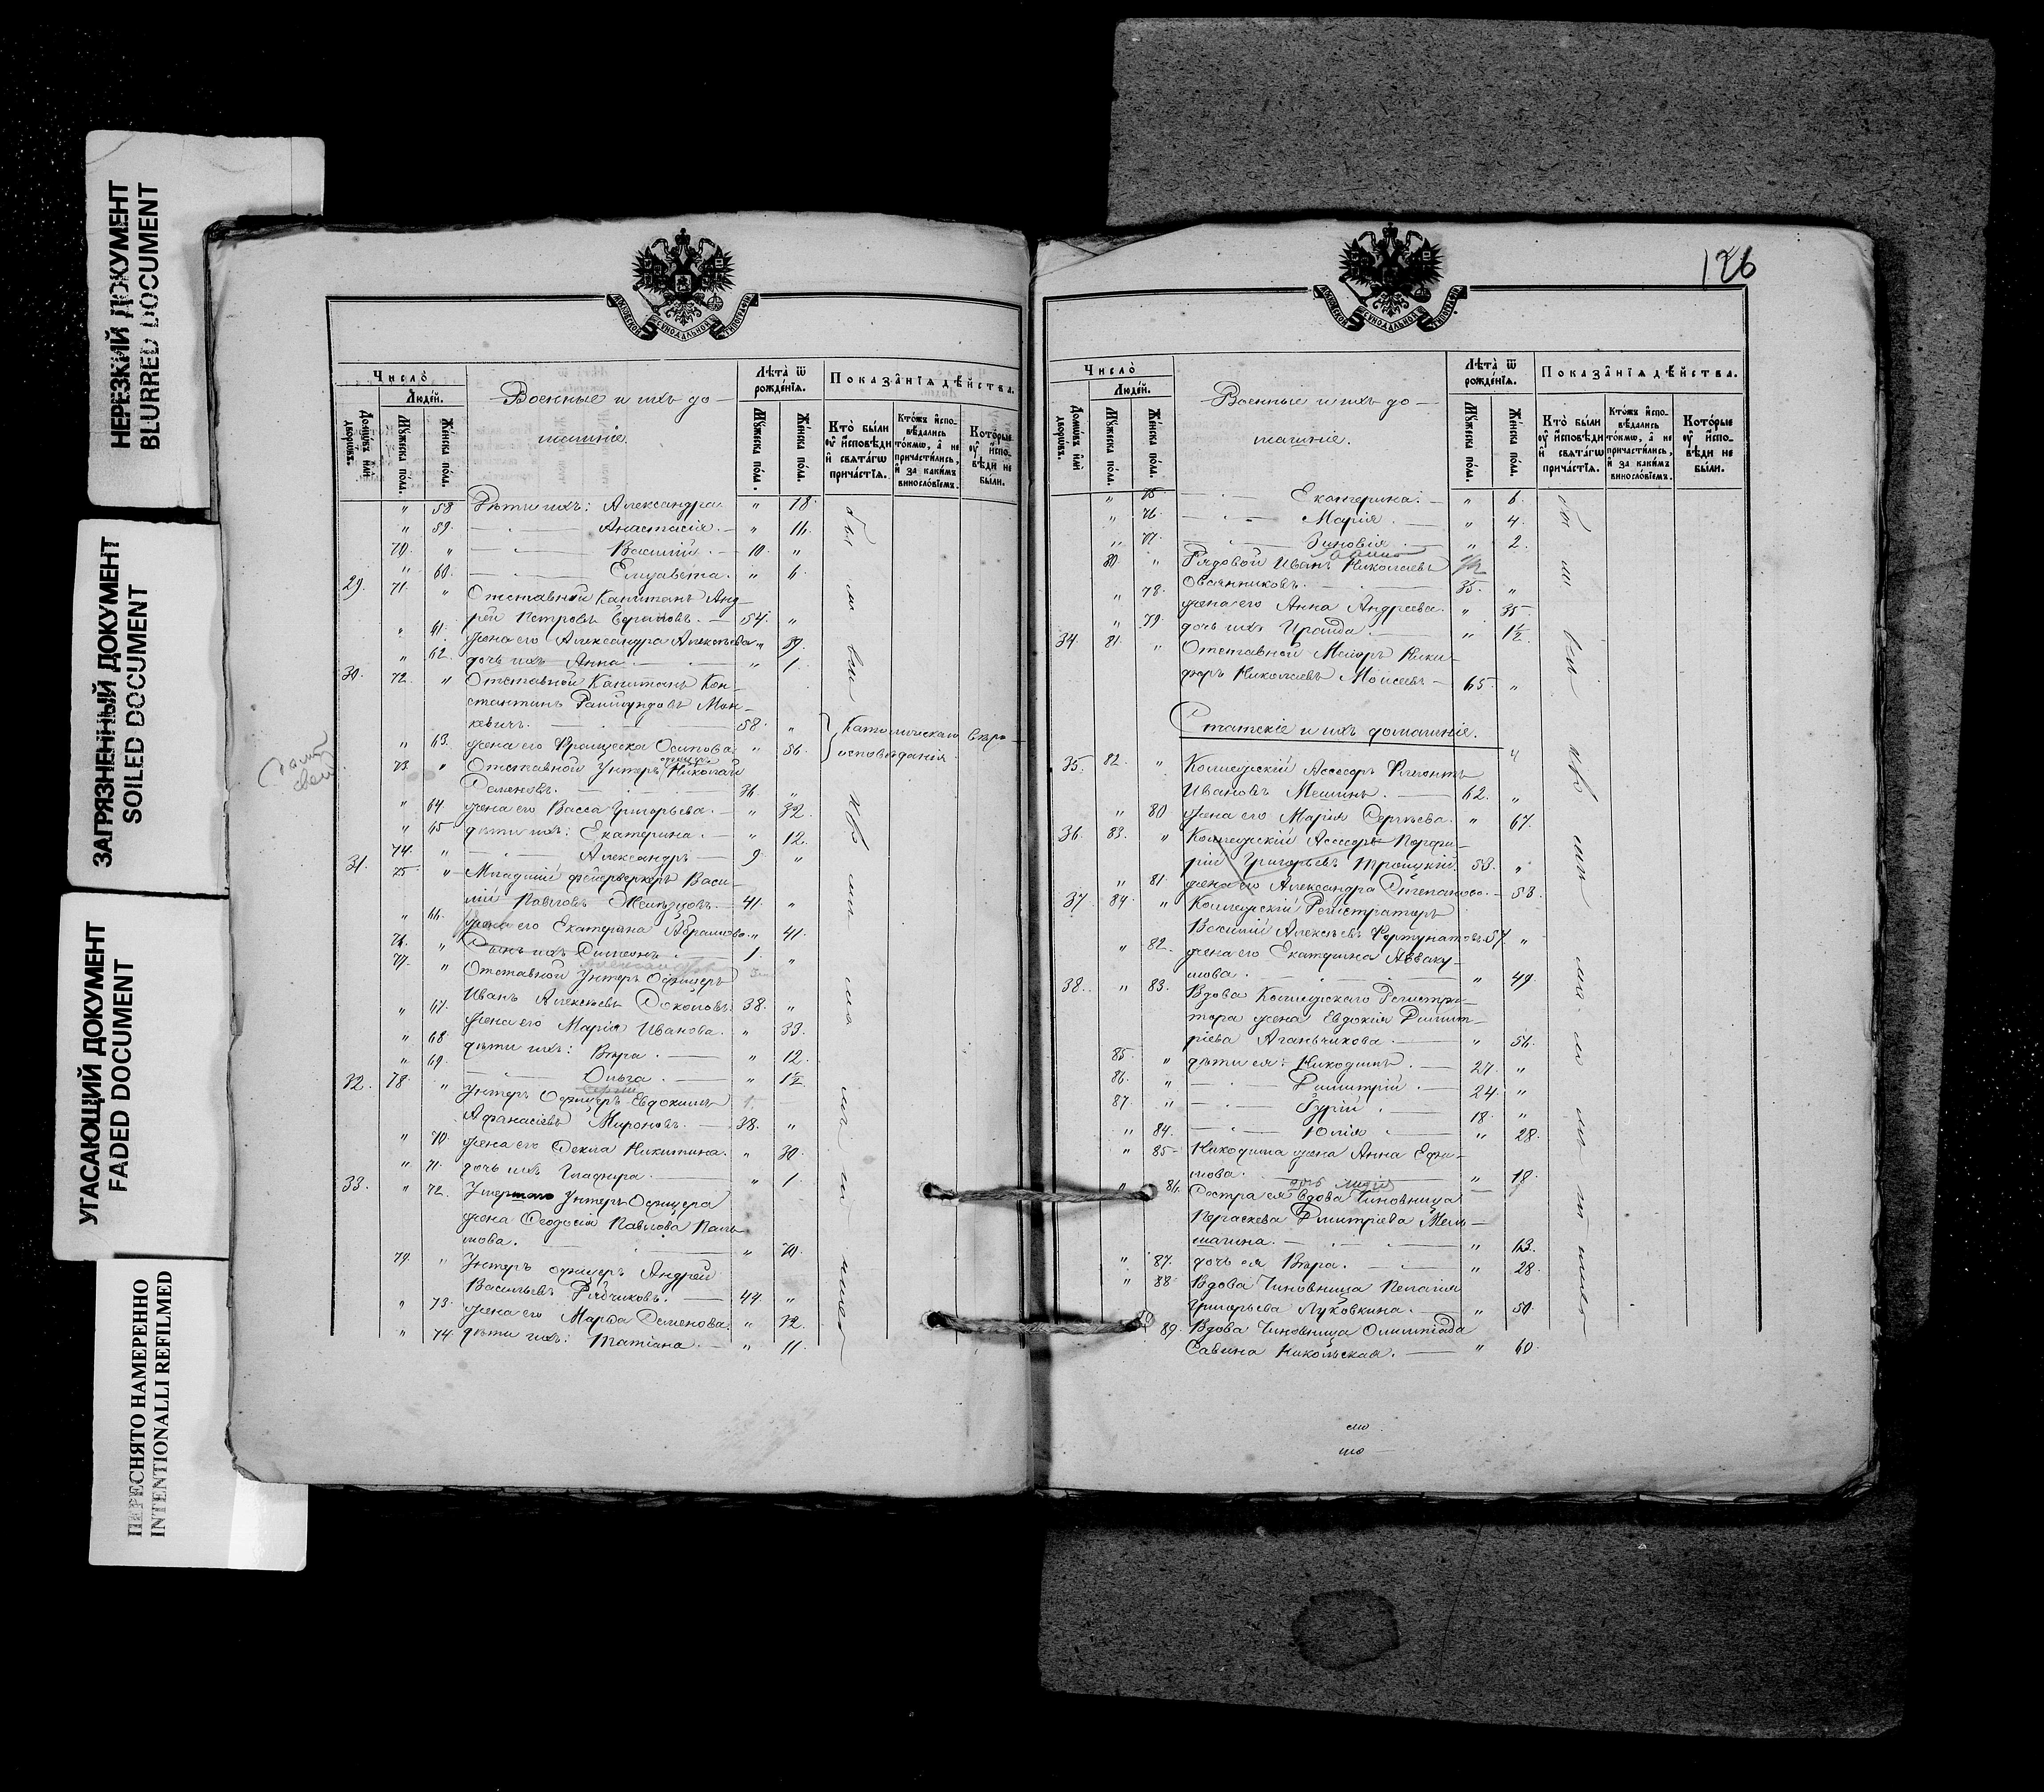 НЕРЕЗКИЙ ДОКУМЕНТ
BLURRED DOCUMENT
ЗАГРЯЗНЕННЫЙ ДОКУМЕНТ
SOILED DOCUMENT
УГАСАЮЩИЙ ДОКУМЕНТ
FADED DOCUMENT
ПЕРЕСНЯТО НАМЕРЕННО
INTENTIONALLI REFILMED
Число̀
Людей.
Домѡвъ или дворѡвъ.
Мꙋжеска пола.
Женска пола.
Военные и ихъ до-
машніе.
Лѣта̀ ѿ рожденїѧ.
Мꙋжеска пола.
Женска пола.
Показанїѧ дѣйства.
Кто̀ были оу исповѣди и свѧтагѡ причастїѧ.
Ктожъ исповѣдались токмѡ, а не причастились, и за какимъ винословїемъ.
Которые оу исповѣди не были.
" 58 Дѣти ихъ: Александра " 18.
" 59. Анастасія. " 11.
70. " Василій. 10. "
" 60. Елизавета. " 6.
29. 71. " Отставной Капитанъ Анд-
рей Петровъ 54. "
" 61. жена его Александра Алексѣева " 39.
" 62. дочь ихъ Анна. " 1.
30. 72. " Отставной Капитанъ Кон-
стантинъ Раймундовъ Мон-
кевичъ. 58. "
" 63. жена его Францеска Осипова " 56.
Католическаго вѣро-
исповѣданія
73 " Отставной Унтеръ офицеръ Николай
Семеновъ. 36. "
" 64. жена его Васса Григорьева. " 32.
" 65 дѣти ихъ: Екатерина. " 12.
74. " Александръ 9. "
31. 75 " Младшій фейерверкеръ Васи-
лій Павловъ 41. "
" 66. жена его Екатерина Абрамова. " 41.
76. " Сынъ ихъ Симеонъ. 1. "
77. " Отставной Унтеръ Офицеръ
Иванъ Алексѣевъ 38. "
" 67. жена его Марія Иванова. " 33.
" 68 дѣти ихъ: Вѣра. " 12.
" 69. Ольга. " 1½
32. 78. " Унтеръ Офицеръ Евдокимъ
Афанасіевъ Мироновъ. 38. "
" 70. жена его Фекла Никитина. " 30.
" 71. дочь ихъ Глафира. " 1.
33. " 72. Умершаго Унтеръ Офицера
жена Феодосія Павлова
" 70.
79. " Унтеръ офицеръ Андрей
Васильевъ Рябчиковъ. 44. "
" 73. жена его Марѳа Семенова. " 32.
" 74. дѣти ихъ: Татіана. " 11.
126
Число̀
Людей.
Домѡвъ или дворѡвъ.
Мꙋжеска пола.
Женска пола.
Военные и ихъ до-
машніе.
Лѣта̀ ѿ рожденїѧ.
Мꙋжеска пола.
Женска пола.
Показанїѧ дѣйства.
Кто̀ были оу исповѣди и свѧтагѡ причастїѧ.
Ктожъ исповѣдались токмѡ, а не причастились, и за какимъ винословїемъ.
Которые оу исповѣди не были.
" 75 Екатерина. " 6.
" 76. Марія. " 4.
" 77. Зиновія. " 2.
80. " Рядовой Иванъ Николаевъ
Овчинниковъ. 35. "
" 78. жена его Анна Андреева. " 35
" 79. дочь ихъ Ираида. " 1½
34 81. " Отставной Маіоръ Ники-
форъ Николаевъ Моисеевъ 65. "
Статскіе и ихъ домашніе.
35. 82. " Коллежскій Ассесоръ
Ивановъ Мешинъ. 62. "
" 80 жена его Марія Сергѣева. " 67.
36. 83. " Коллежскій Ассесоръ Порфи-
рій Григорьевъ Троицкій. 53. "
" 81. жена его Александра Степанова. 53.
37. 84. " Коллежскій Регистраторъ
Василій Алексѣевъ Фортунатовъ. 57. "
" 82. жена его Екатерина Авваку-
мова. " 49.
38. " 83. Вдова Коллежскаго Регистра-
тора жена Евдокія Димит-
ріева Аганьчикова. " 56.
85. " дѣти ея: Никодимъ. 27. "
86. " Димитрій. 24. "
87. " Гурій. 18. "
" 84. Юлія " 28.
" 85 Никодима жена Анна Ефи-
мова. " 18.
" 86. Сестра ея вдова Чиновница
Параскева Дмитріева
" 63.
" 87. дочь ея Вѣра. " 28.
" 88 Вдова Чиновница Пелагія
Григорьева Луковкина. " 50.
89. Вдова Чиновница Олимпіада
Савина Никольская. " 60.